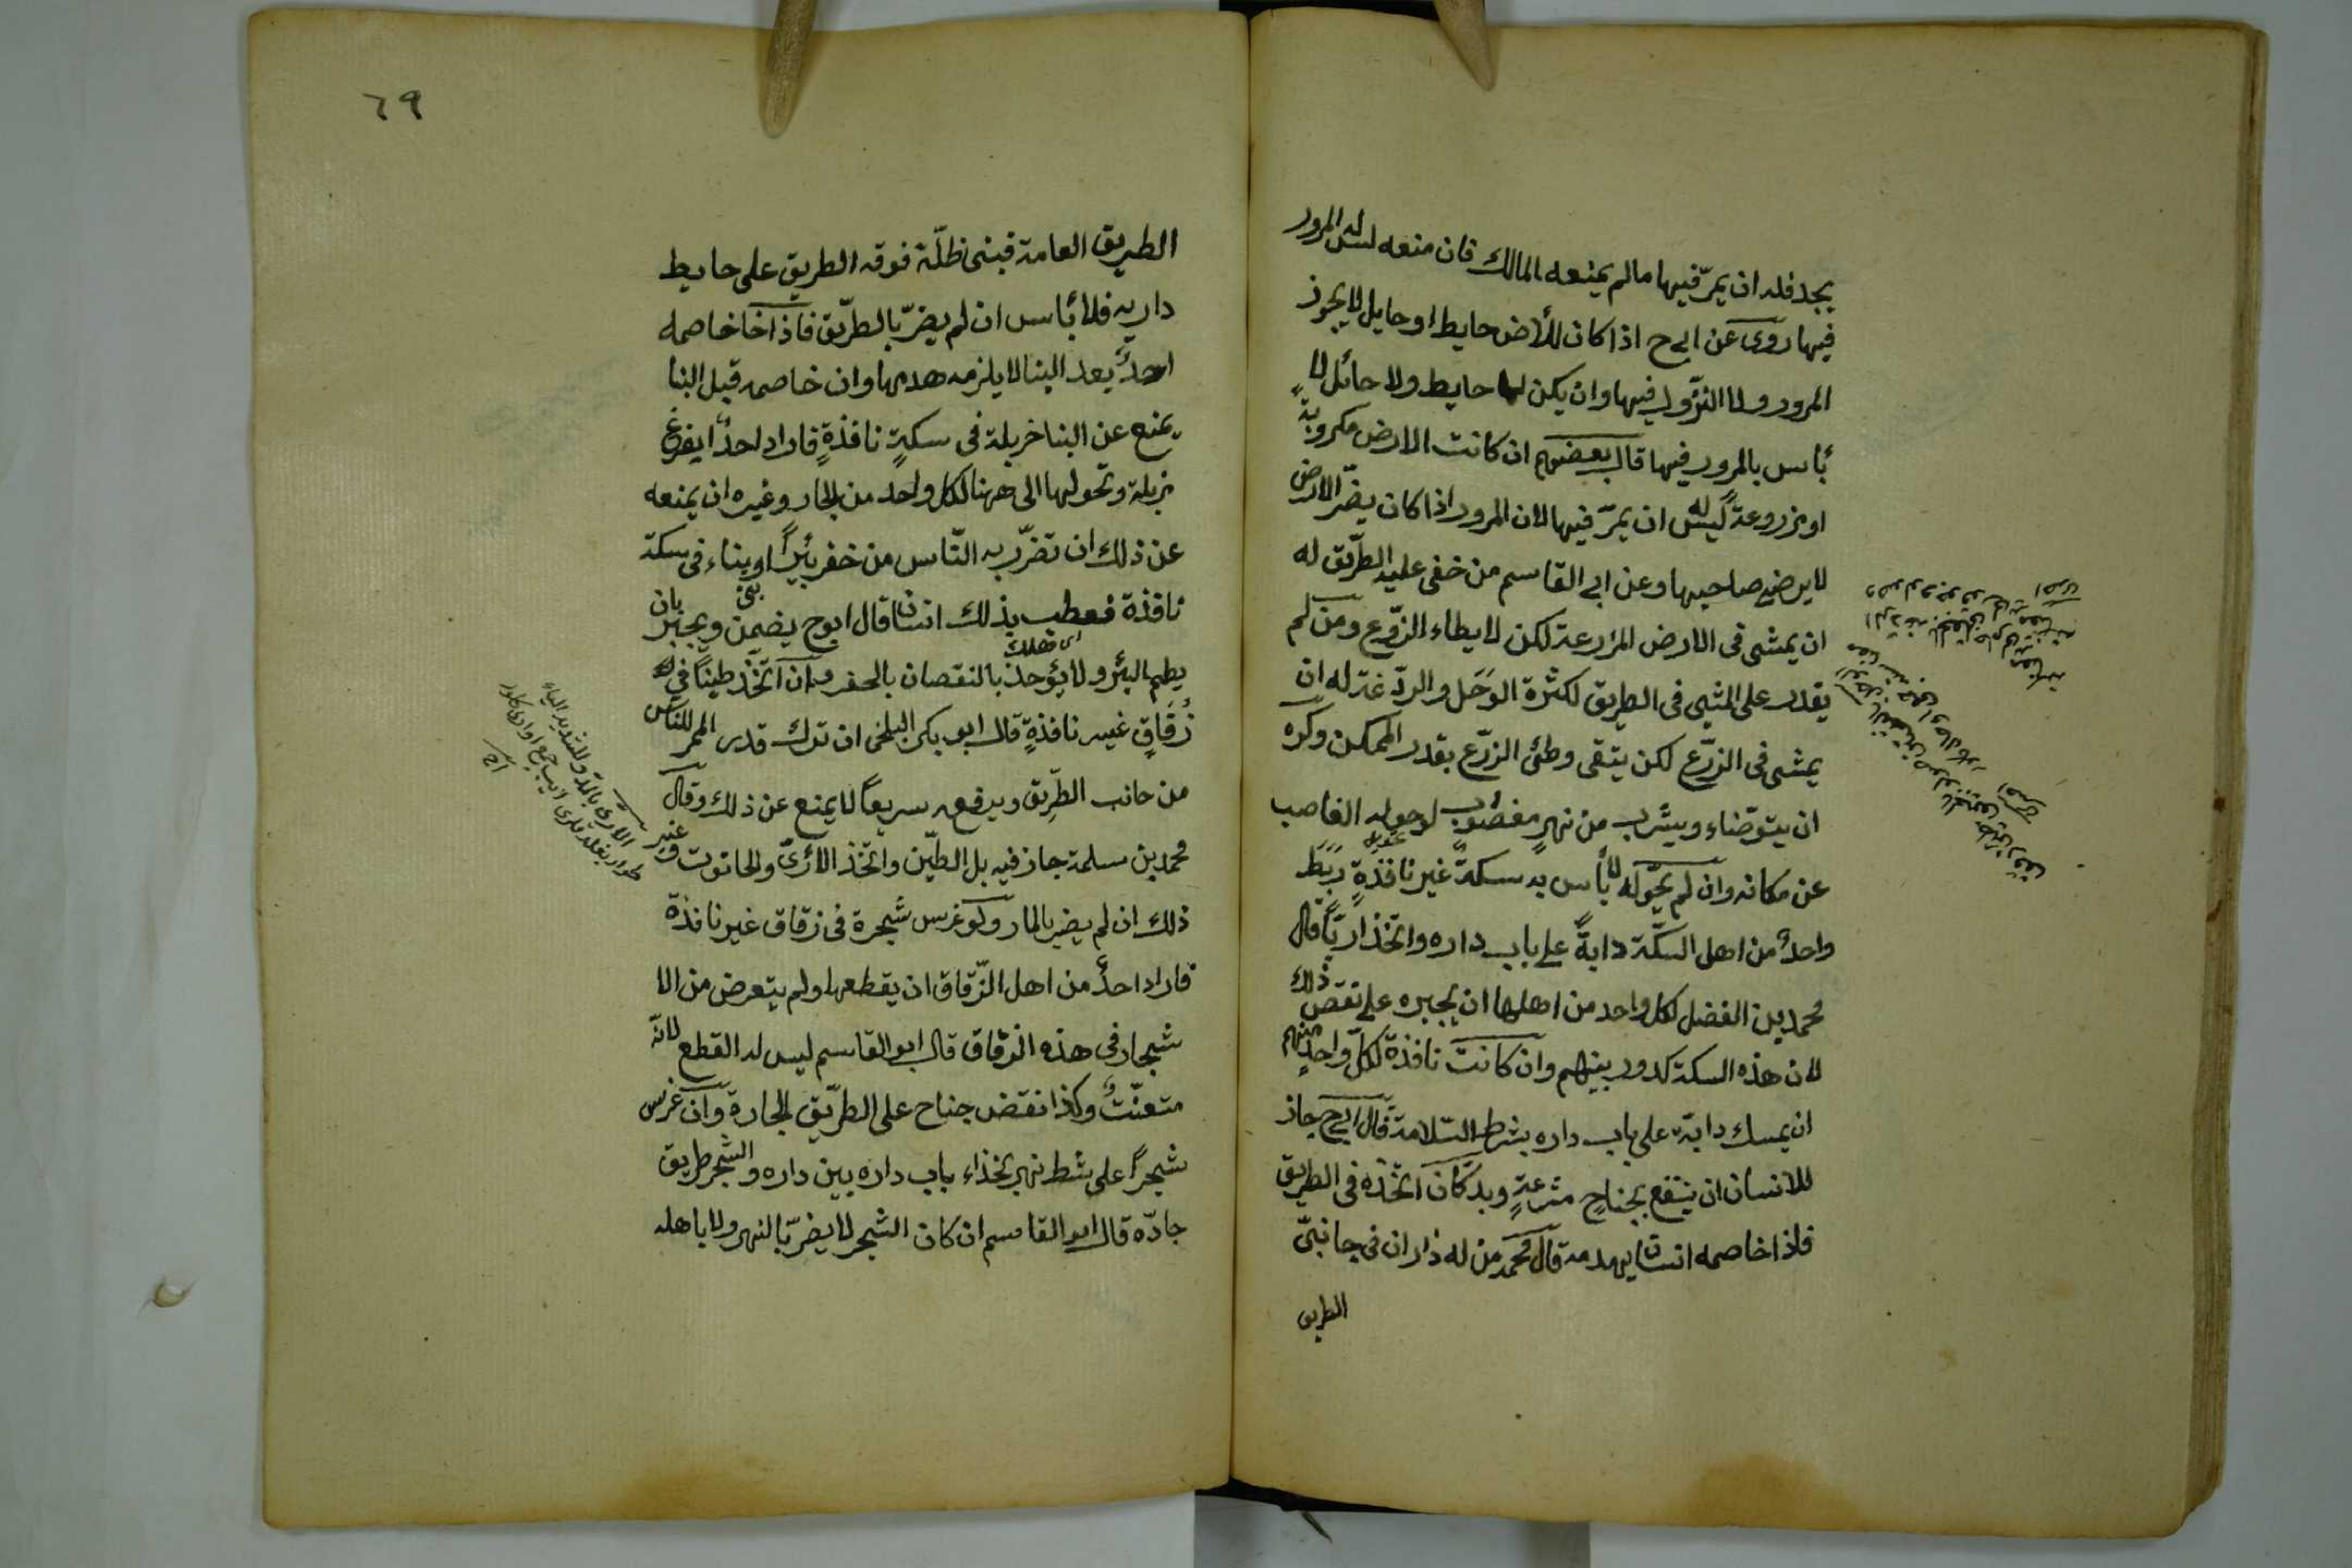 يجد فله ان يمرّ فيها مالم يمنعه المالك فان منعه ليس له المرور
فيها روى عن ابى ح اذا كان للأرض حايط او حايل لا يجوز
المرور ولا النزّول فيها وان يكن لها حايط ولا حائل لا
بأس بالمرور فيها قال بعضهم ان كانت الارض مكروبةً
او مزروعةً ليس له ان يمرّ فيها لان المرور اذا كان يضرّ الارض
لا يرضى صاحبها وعن ابى القاسم من خفى عليه الطرّيق له
ان يمشى فى الارض المزرعة لكن لا يطاء الزرّع ومن لم
يقدر على المشى فى الطريق لكثرة الوَحَل والردّغة له ان
يمشى فى الزرّع لكن يتقى وطئ الزرّع بقدر الممكن وكره
ان يتوضّاء ويشرب من نهرٍ مغصُوب لو حوله الغاصب
عن مكانه وان لم يحّوله لا بأس به سكةٌ غير نافذةٍ رَبَطَ
واحدٌ من اهل السكّة دابةً على باب داره واتخذ اريّاً قال
محمد بن الفضل لكل واحد من اهلها ان يجبره على نقض ذلك
لان هذه السكة كدور بينهم وان كانت نافذة لكلّ واحدٍ منهم
ان يمسك دابّة على باب داره بشرط السّلامة قال ابى ح جاز
للانسان ان ينتفع بجناحٍ مشرعةٍ وبدكّان اتخّذه فى الطريق
فاذا خاصمه انسان يهدمه قال محمّد من له داران فى جانبىّ
الطريق
٦٩
الطريق العامة فبنى ظلّة فوقه الطريق على حايط
داريه فلا بأس ان لم يضرّ بالطرّيق فاذا خاصمه
احدٌ بعد البنا لا يلزمه هدمها وان خاصمه قبل البنا
يمنع عن البنا خربلة فى سكةٍ نافذةٍ فاراد احدٌ ايفرغ
بزبلة وتحولها الى ههنا لكل واحد من الجار وغيره ان يمنعه
عن ذلك ان تضرّ به النّاس من حفر بئيراً او بناء فى سكة
نافذة فعطب بذلك انسان قال ابو ح يضمن ويجبر بان
اى هلك
يطم البئر ولا يؤخذ بالنقصان بالحفر وان اتخّذ طيناً فى
زُقَاقٍ غير نافذةٍ قال ابو بكر البلخى ان ترك قدر الممر للناس
من جانب الطرّيق ويدفعه سريعاً لا يمنع عن ذلك وقال
محمد بن سلمة جاز فيه بل الطيّن واتخذ الأرىّ والحانوت وغير
ذلك ان لم يضر بالمار ولو غرس شجرة فى زقاق غير نافذة
فاراد احدٌ من اهل الزّقاق ان يقطعها ولم يتعرض من الا
شجار فى هذه الزقاق قال ابو القاسم ليس له القطع لانّه
متعنّتٌ وكذا نقض جناح على الطرّيق الجارة وان غرس
شجراً على شط نهر بحذاء باب داره بين داره والشجر طريق
جادّه قال ابو القاسم ان كان الشجر لا يضرّ بالنهر ولا باهله
الآرى بالمدّ والتشديد الياء